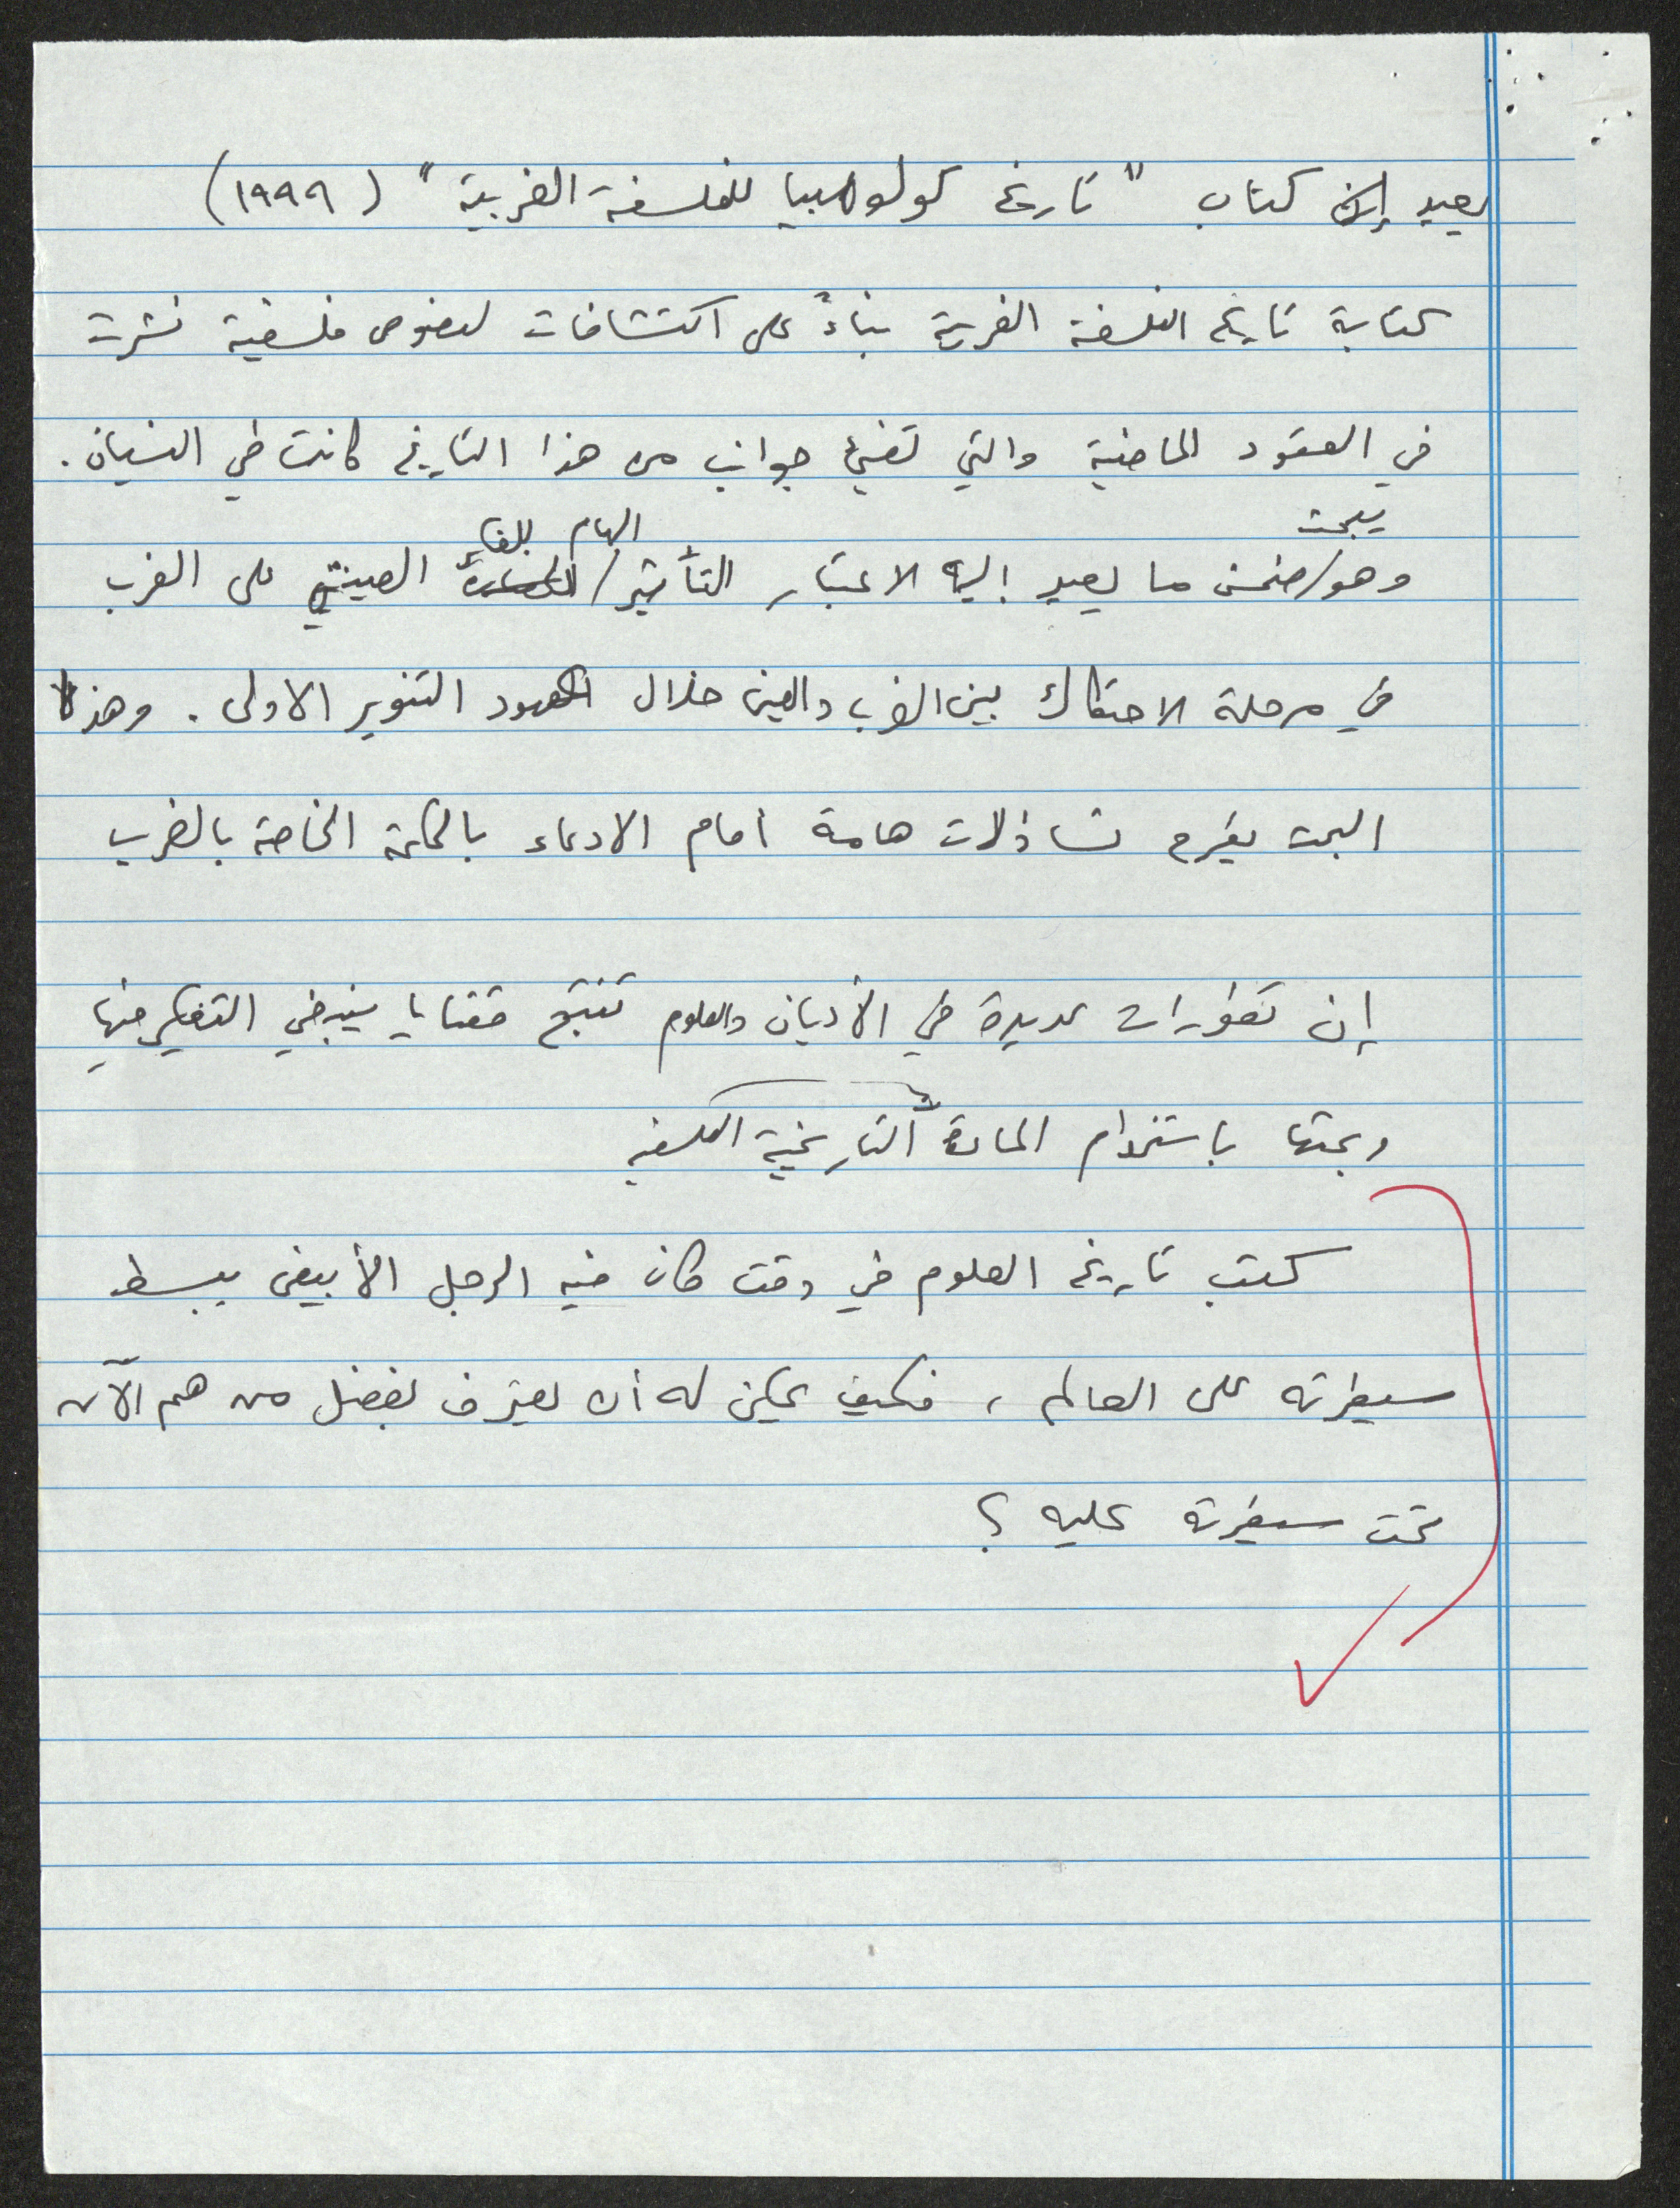 يعيد كتاب "تاريخ كولومبيا للفلسفة الغربية" (١٩٩٩)
كتابة تاريخ الفلسفة الغربية بناءً على اكتشافات لنصوص فلسفية نشرت
في العقود الماضية والتي تضيء جوانب من هذا التاريخ كانت طي النسيان.
يبحث
الهام للفكر
وهو/ضمن ما يعيد إليه الاعتبار التأثير/ الصيني على الغرب
في مرحلة الاحتكاك بين الغرب والصين خلال عهود التنوير الاولى. وهذا
البحث يطرح تساؤلات هامة أمام الادعاء بالحكمة الخاصة بالغرب
إن تطورات عديدة في الأديان والعلوم تنتج قضايا ينبغي التفكير فيها
وبحثها باستخدام المادة التاريخية الفلسفية
كتب تاريخ العلوم في وقت كان فيه الرجل الأبيض يبسط
سيطرته على العالم، فكيف يمكن له أن يعترف بفضل من هم الآن
تحت سيطرته عليه؟